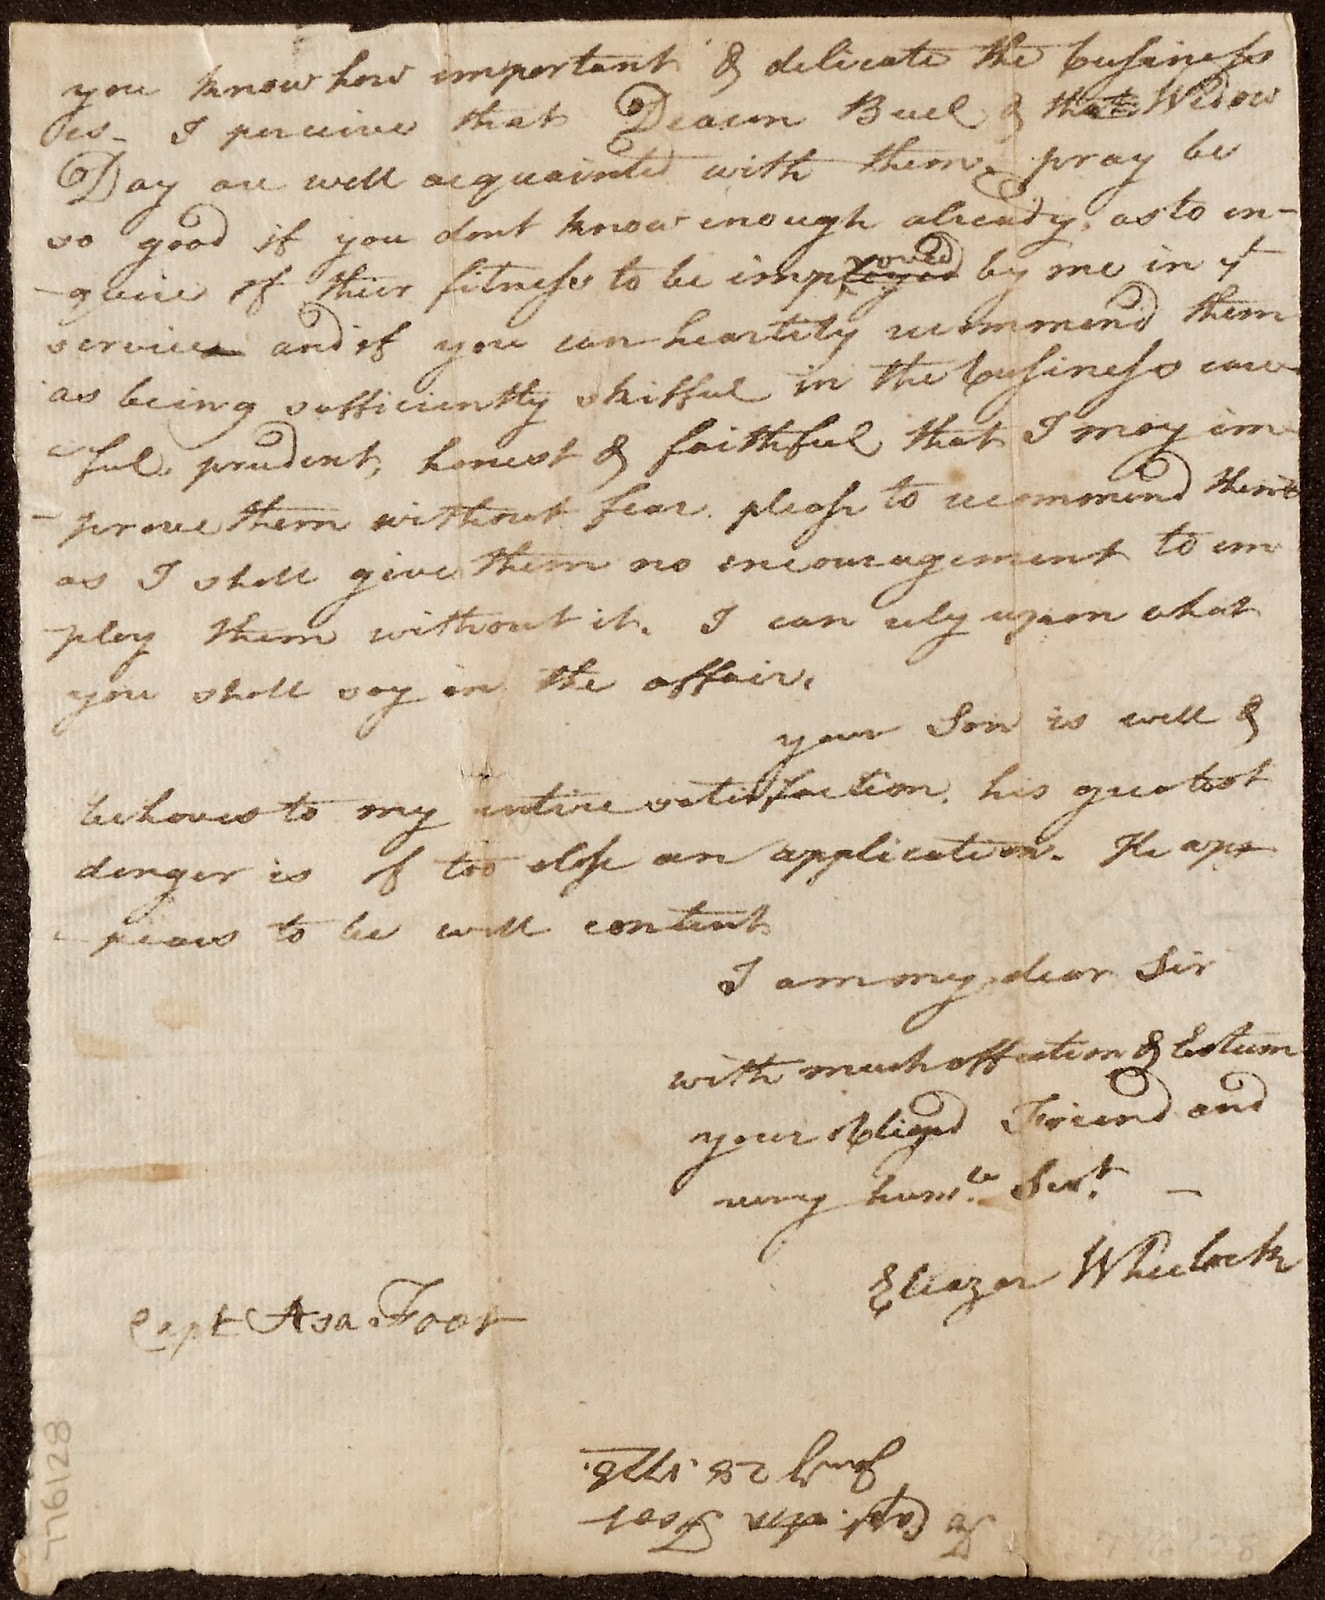 you know how important & delicate the business
is- I perceive that Deacon Buel & that Widow
Day are well acquainted with them, pray be
so good if you dont know enough already, as to en-
-quire of their fitness to be improved by me in yt
service and if you can heartily recommend them
as being sufficiently skilful in the business care
-ful, prudent, honest & faithful that I may im
-prove them without fear. please to recommend them
as I shall give them no encouragement to em
-ploy them without it. I can rely upon what
you shall say in the affair.
your Son is well &
behaves to my entire satisfaction, his greatest
danger is of too close an application. He ap
-pears to be well content
I am my dear Sir
with much affection & Esteem
your obliged Friend and
very humle. Servt. -
Eleazar Wheelock
Capt Asa Foot
To Capt. Asa Foot
Jany 28. 1776.
776128
776128